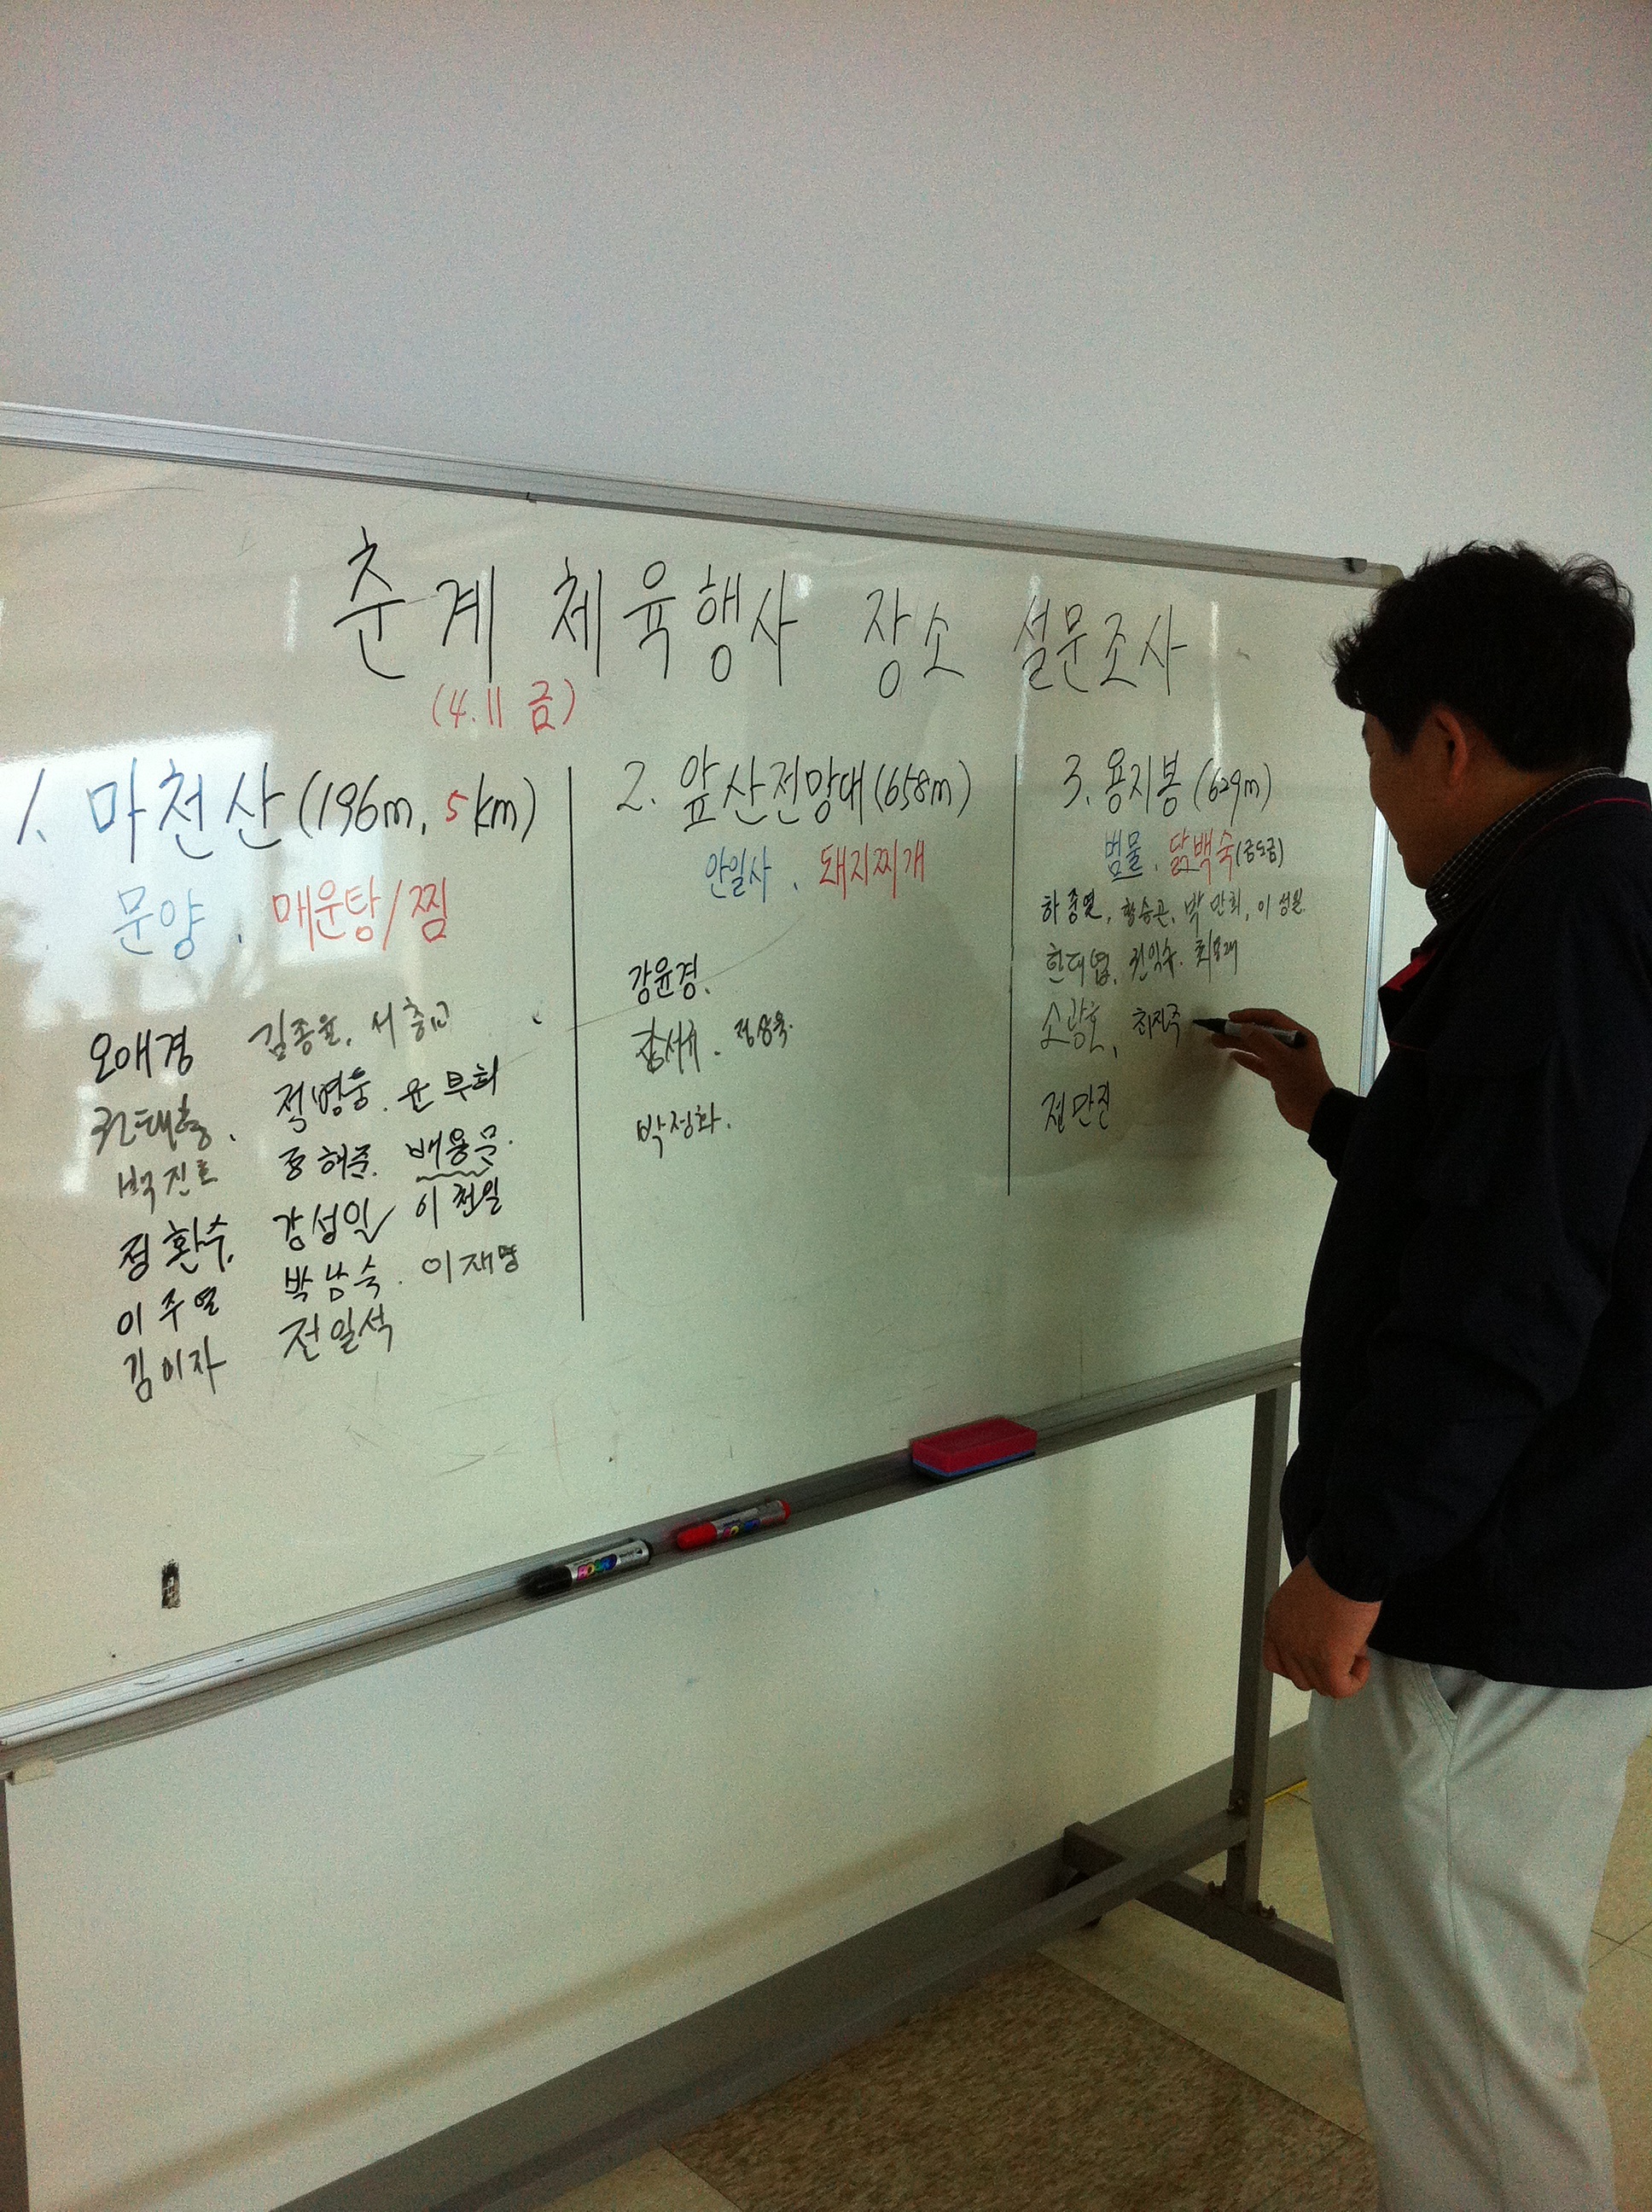 춘계 체육행사 장소 설문조사
(4.11 금)
1. 마천산 (196m, 5km)
문양, 매운탕/찜
오애경 김종윤, 서충교
권태흥,
정병웅. 윤부희
박진호
허준. 배용문.
정환수, 강성일 이천일
이주열 박남숙. 이재명
김이자 전일석
2. 앞산전망대 (658m)
안일사, 돼지찌개
강윤경.
정상욱.
박정화.
3. 용지봉 (629m)
범물, 닭백숙
하종열, 황승곤, 박만희, 이성원
한대엽, 권익수.
소광호, 최진국
정만진